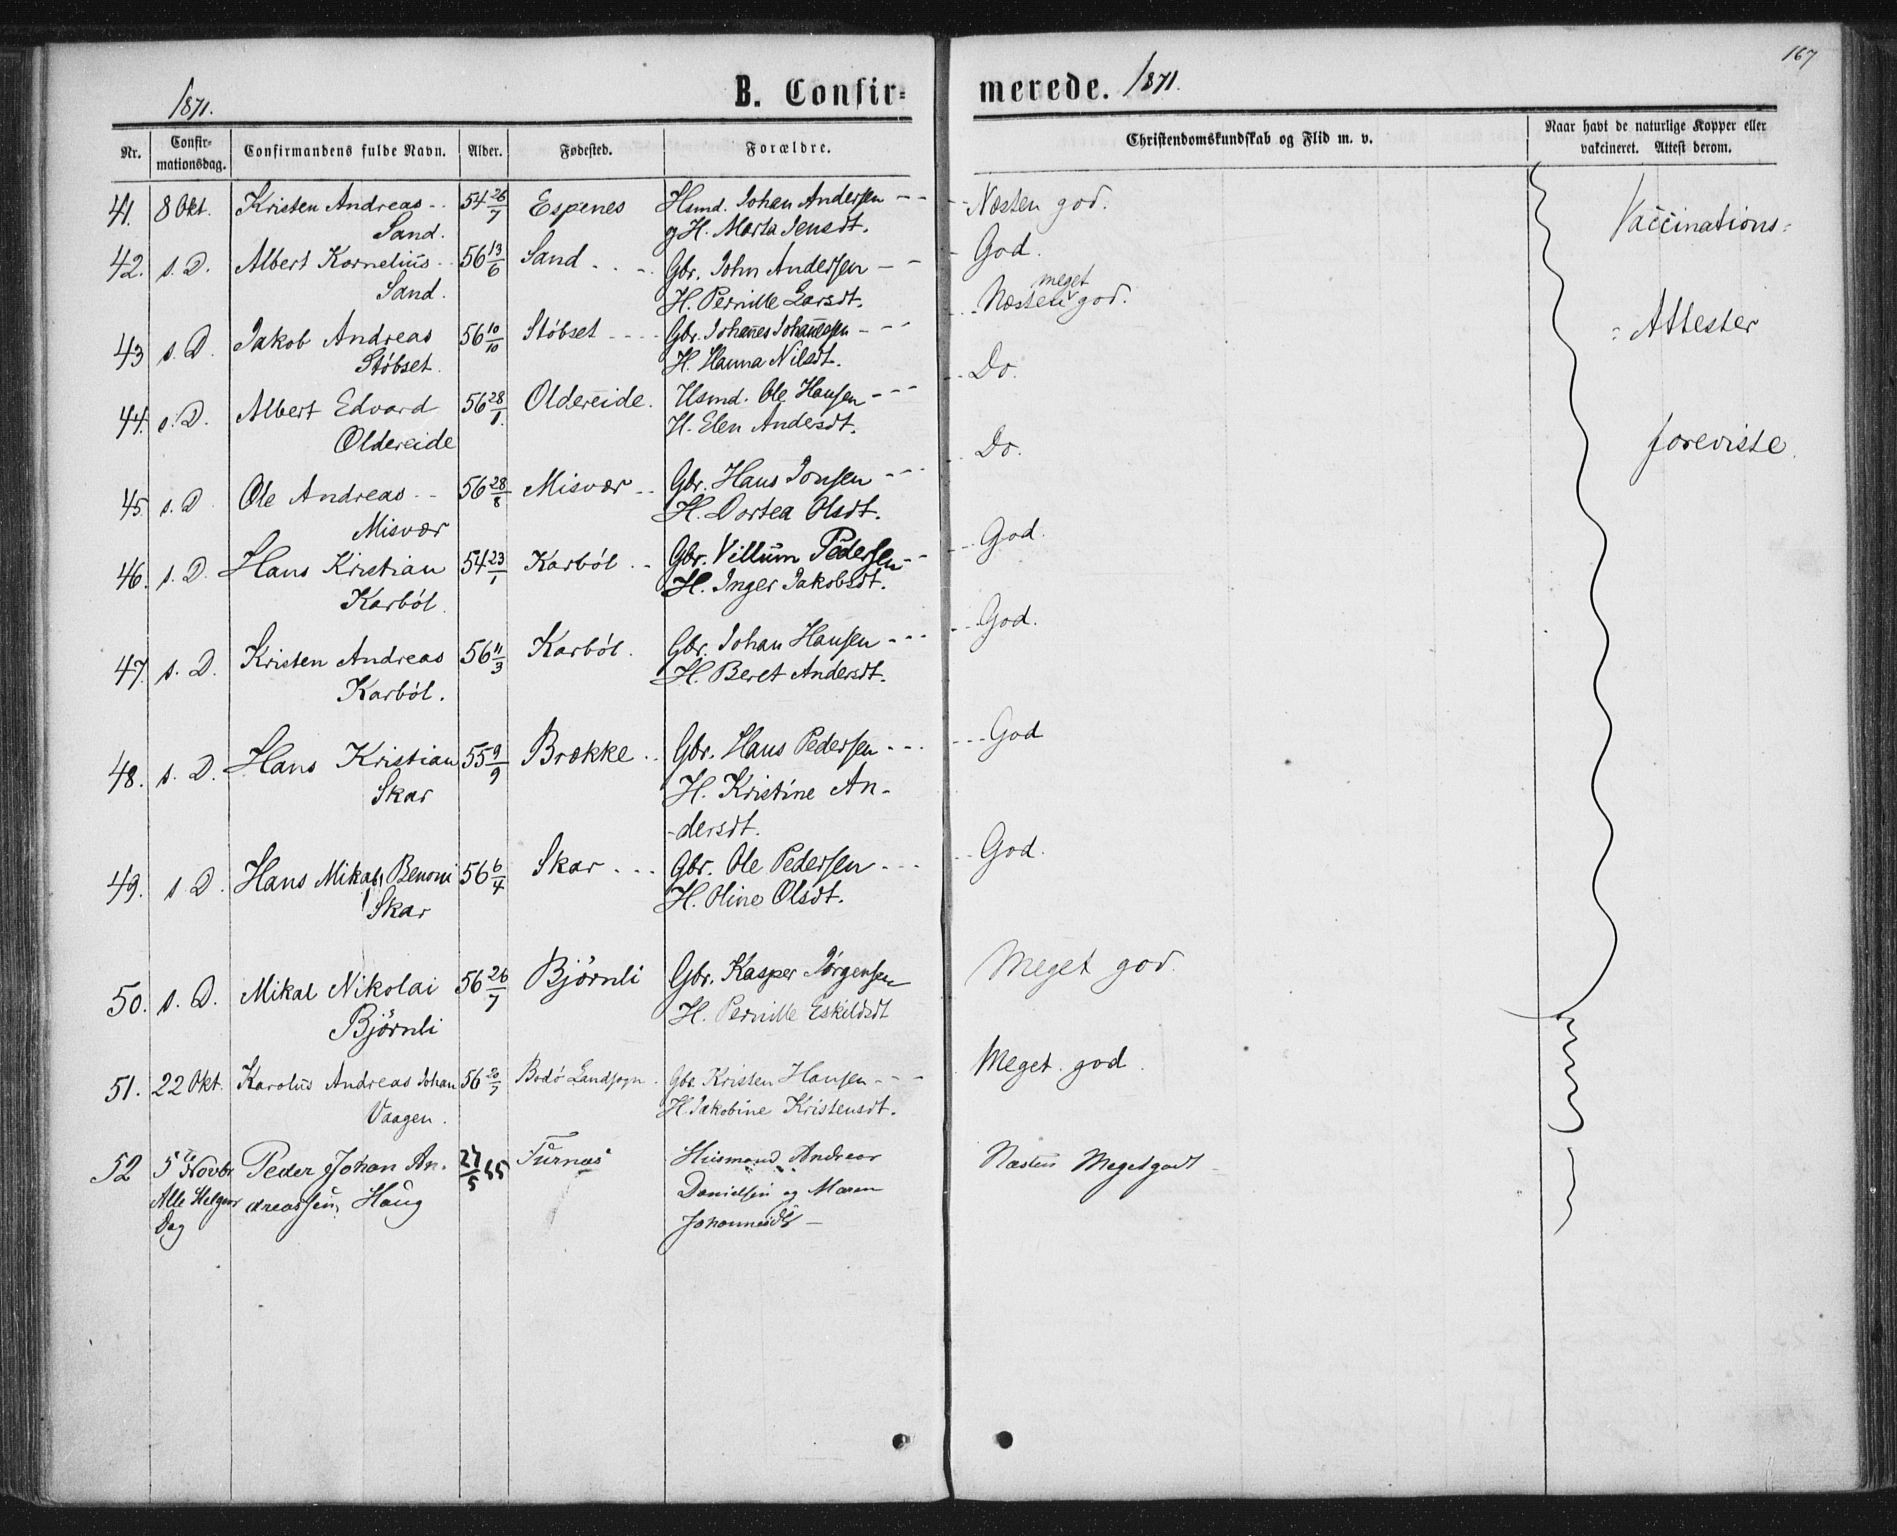 167
1871.
B. Confir-
merede. 1871.
Nr.
Confir-
mationsdag.
Confirmandens fulde Navn.
Alder.
Fødested.
Forældre.
Christendomskundskab og Flid m. v.
Naar havt de naturlige Kopper eller
vakcineret. Attest derom.
41. 8 Okt. Kristen Andreas - - 54 26/7 Espenes Hsmd. Johan Andersen - - - Næsten god.
Sand. og H. Marta Jensdt.
42. s. D. Albert Kornelius - - 56 13/6 Sand . . - . Gbr. John Andersen - - - God.
Sand. H. Pernille Larsdt.
43 s. D. Jakob Andreas 56 10/10 Støbset - - - - Gbr. Johanes Johanesen - - - Næsten meget god.
Støbset. H. Hanna Nilsdt.
44. s. D. Albert Edvard 56 28/1. Oldereide. Hsmd. Ole Hansen - - - Do.
Oldereide H. Elen Andersdt.
45. s. D. Ole Andreas - - 56 28/8 Misvær - - Gbr. Hans Jonsen - - - Do.
Misvær H. Dortea Olsdt.
46. s. D. Hans Kristian 54 23/1 Karbøl . - Gbr. Villum Pedersen - - God.
Karbøl. H. Inger Jakobsdt.
47. s. D. Kristen Andreas 56 11/3 Karbøl. Gbr. Johan Hansen - - - God.
Karbøl. H. Beret Andersdt.
48. s. D. Hans Kristian 55 9/9 Brække . . Gbr. Hans Pedersen - - - God
Skar H. Kristine An-
-dersdt.
49. s. D. Hans Mikal, Benoni 56 6/4 Skar . . . Gbr. Ole Pedersen - - - God.
Skar H. Oline Olsdt.
50. s. D. Mikal Nikolai 56 26/7 Bjørnli Gbr. Kasper Jørgensen Meget god.
Bjørnli H. Pernille Eskildsdt
51. 22 Okt. Karolus Andreas Johan 56 20/7 Bodø Landsogn. Gbr. Kristen Hansen - - - Meget god.
Vaagen. H. Jakobine Kristensdt.
52 5te Novbr Peder Johan An- 27/5 55 Husmand Andreas Næsten Megetgodt
Alle Helgens dreassen, Haug Danielsen og Maren
Dag Johannesdt -
Vaccinations-
- Attester
foreviste.